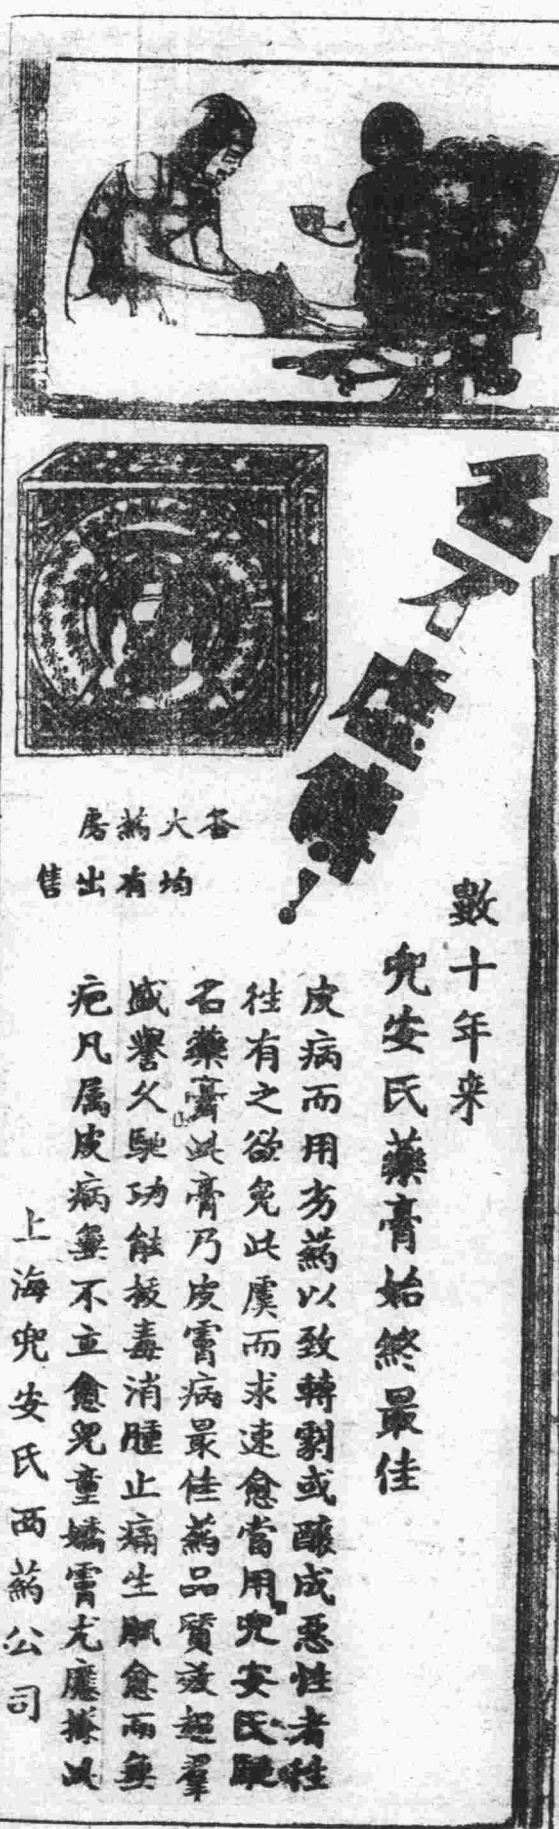 數十年来
兜安氏藥膏始終最佳
皮病而用劣葯以致轉劇或釀成惡性者往
往有之欲免此虞而求速愈當用兜安氏馳
名藥膏此膏乃皮膚病最佳葯品質效超羣
盛譽久馳功能拔毒消腫止痛生肌愈而無
疤凡屬皮病無不立愈兒童嬌膚尤應搽此
上海兜安氏西葯公司
各大葯房
均有出售